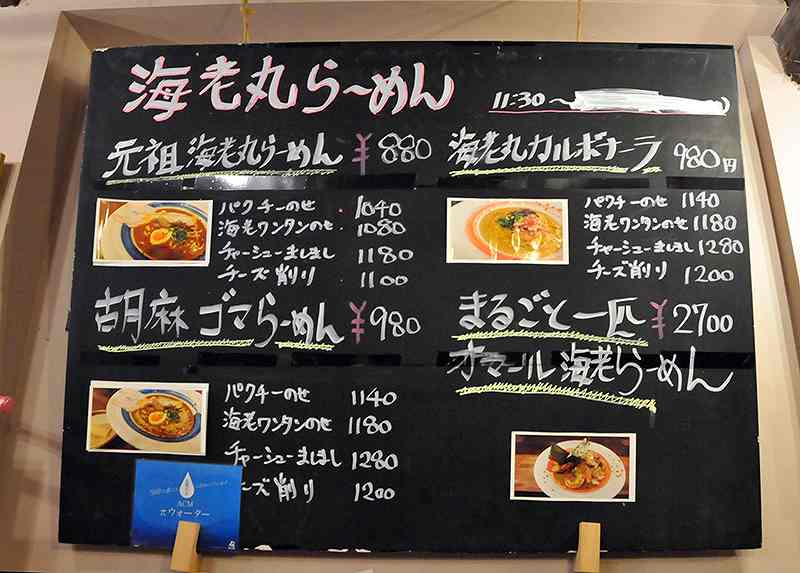 海老丸らーめん
11:30〜
元祖 海老丸らーめん ¥880
パクチーのせ 1040
海老ワンタンのせ 1080
チャーシューましまし 1180
チーズ削り 1100
海老丸カルボナーラ 980円
パクチーのせ 1140
海老ワンタンのせ 1180
チャーシューましまし 1280
チーズ削り 1200
胡麻 ゴマらーめん ¥980
パクチーのせ 1140
海老ワンタンのせ 1180
チャーシューましまし 1280
チーズ削り 1200
まるごと一匹 ¥2700
オマール海老らーめん
ACM
πウォーター